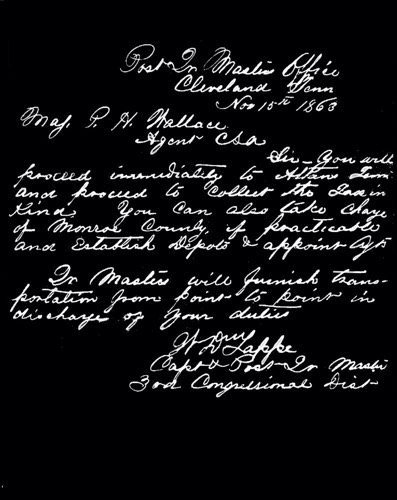 Post Qr Masters Office
Cleveland Tenn
Nov 15th 1863
Maj. P. H. Wallace
Agent CSA
Sir - You will
proceed immediately to Athens Tenn
and proceed to collect the Tax in
Kind. You can also take charge
of Monroe County, if practicable
and Establish Depots & appoint Agts
Qr Masters will furnish trans-
portation from point to point in
discharge of your duties
Lappe
Capt & Post Qr Master
3rd Congressional Dist